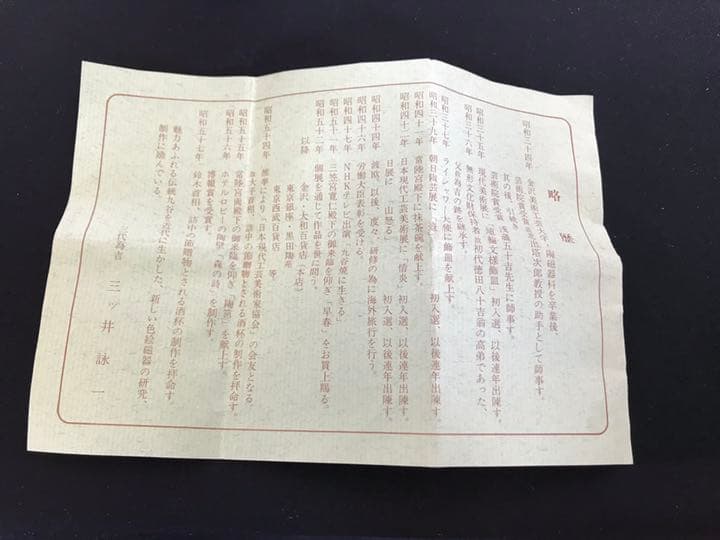 略歴
昭和三十四年 金沢美術工芸大学、陶磁器科を卒業後、
芸術院賞受賞 北出塔次郎教授の助手として師事す。
其の後、引続き
芸術院賞受賞 浅蔵五十吉先生に師事す。
昭和三十五年 現代美術展に「電輪文様飾皿」初入選、以後連年出陳す。
昭和三十六年 無形文化財保持者故初代徳田八十吉翁の高弟であった、
父為吉の跡を継承す。
昭和三十七年 ライシャワー大使に飾皿を献上す。
昭和三十九年 朝日陶芸展に 初入選、以後連年出陳す。
昭和四十一年 常陸宮殿下に抹茶碗を献上す。
昭和四十二年 日本現代工芸美術展に「情炎」初入選、以後連年出陳す。
日展に「山魅る」 初入選、以後連年出陳す。
昭和四十四年 渡欧、以後、度々、研修の為に海外旅行を行う。
昭和四十六年 労働大臣表彰を受ける。
昭和四十七年 NHKテレビ出演「九谷焼に生きる」
昭和五十一年 三笠宮寛仁殿下の御来臨を仰ぎ「早春」をお買上賜る。
昭和五十二年 個展を通じて作品を世に問う。
以降 金沢・大和百貨店(本店)
東京銀座・黒田陶苑
東京西武百貨店 等
昭和五十四年 推挙により「日本現代工芸美術家協会」の会友となる。
故大平首相、訪中の節贈物とされる酒杯の制作を拝命す。
昭和五十五年 常陸宮両殿下の御来臨を仰ぎ「陶筥」を献上す。
昭和五十六年 ホテルロビーの陶壁「森の詩」を制作す。
博報賞を受賞す。
昭和五十七年 鈴木首相、訪中の節贈物とされる酒杯の制作を拝命す。
魅りあふれる伝統九谷を近代に生かした、新しい色絵磁器の研究、
制作に励んでいる。
代為吉 三ッ井詠一